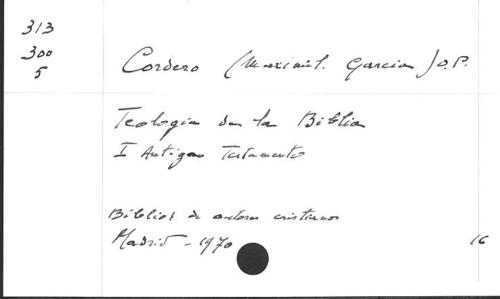 313
300
5
Cordero (Maximil. Garcia) O.P.
Teologia de la Biblia
I Antiguo Testamento
Bibliot de autores cristianos
Madrid - 1970
16